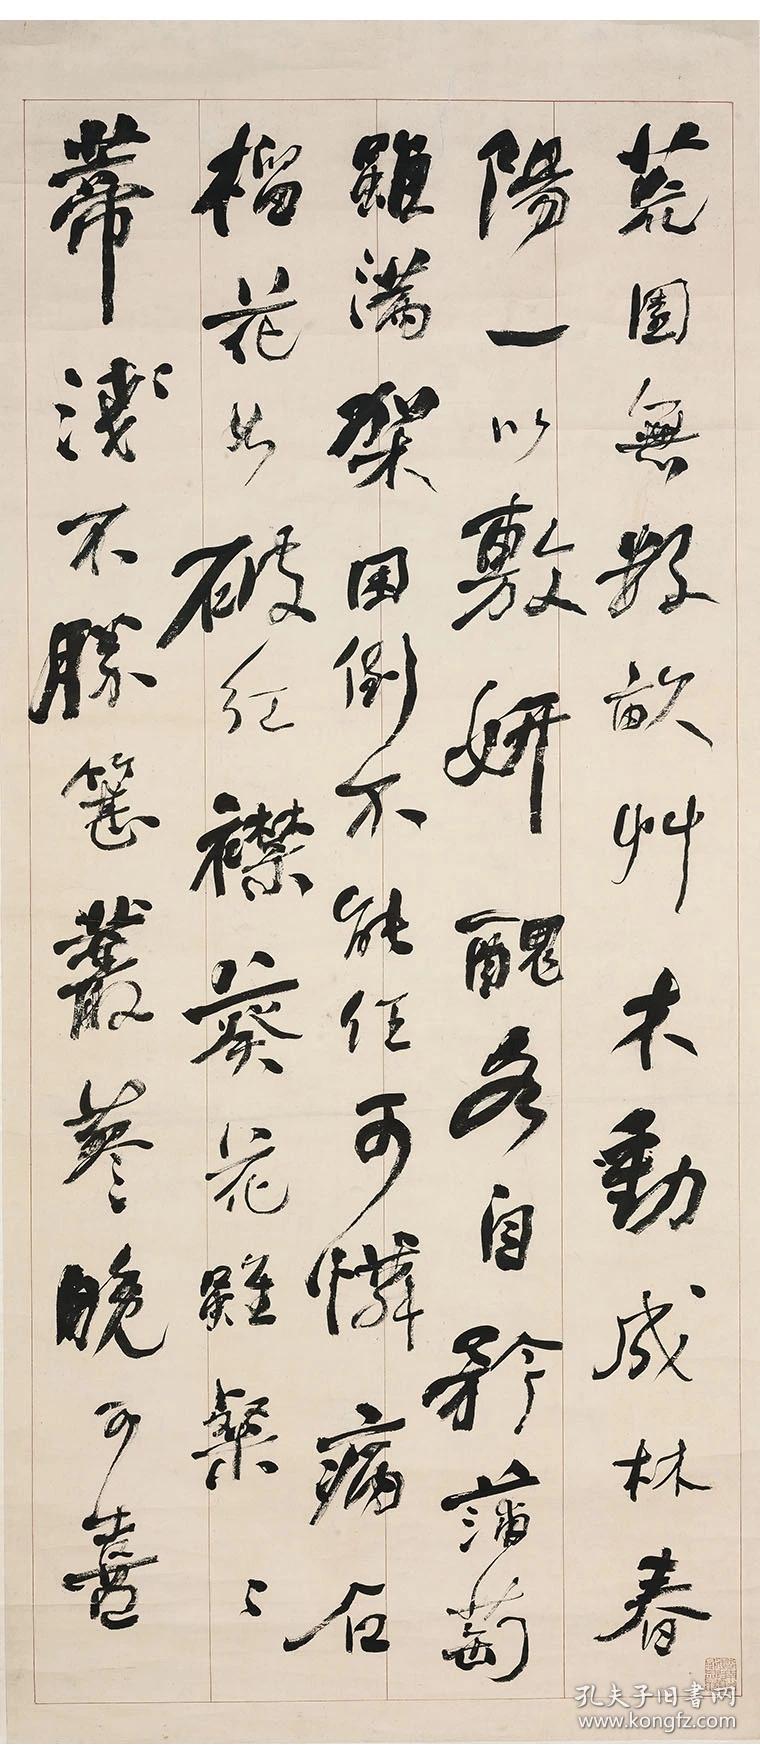 荒園無數畝艸木動成林春
陽一以敷妍醜各自矜蒲萄
雖滿架囷倒不能任可憐病石
榴花如破紅襟葵花雖粲〻
蒂淺不勝簪叢蓼晚可喜
孔夫子旧书网
www.kongfz.com